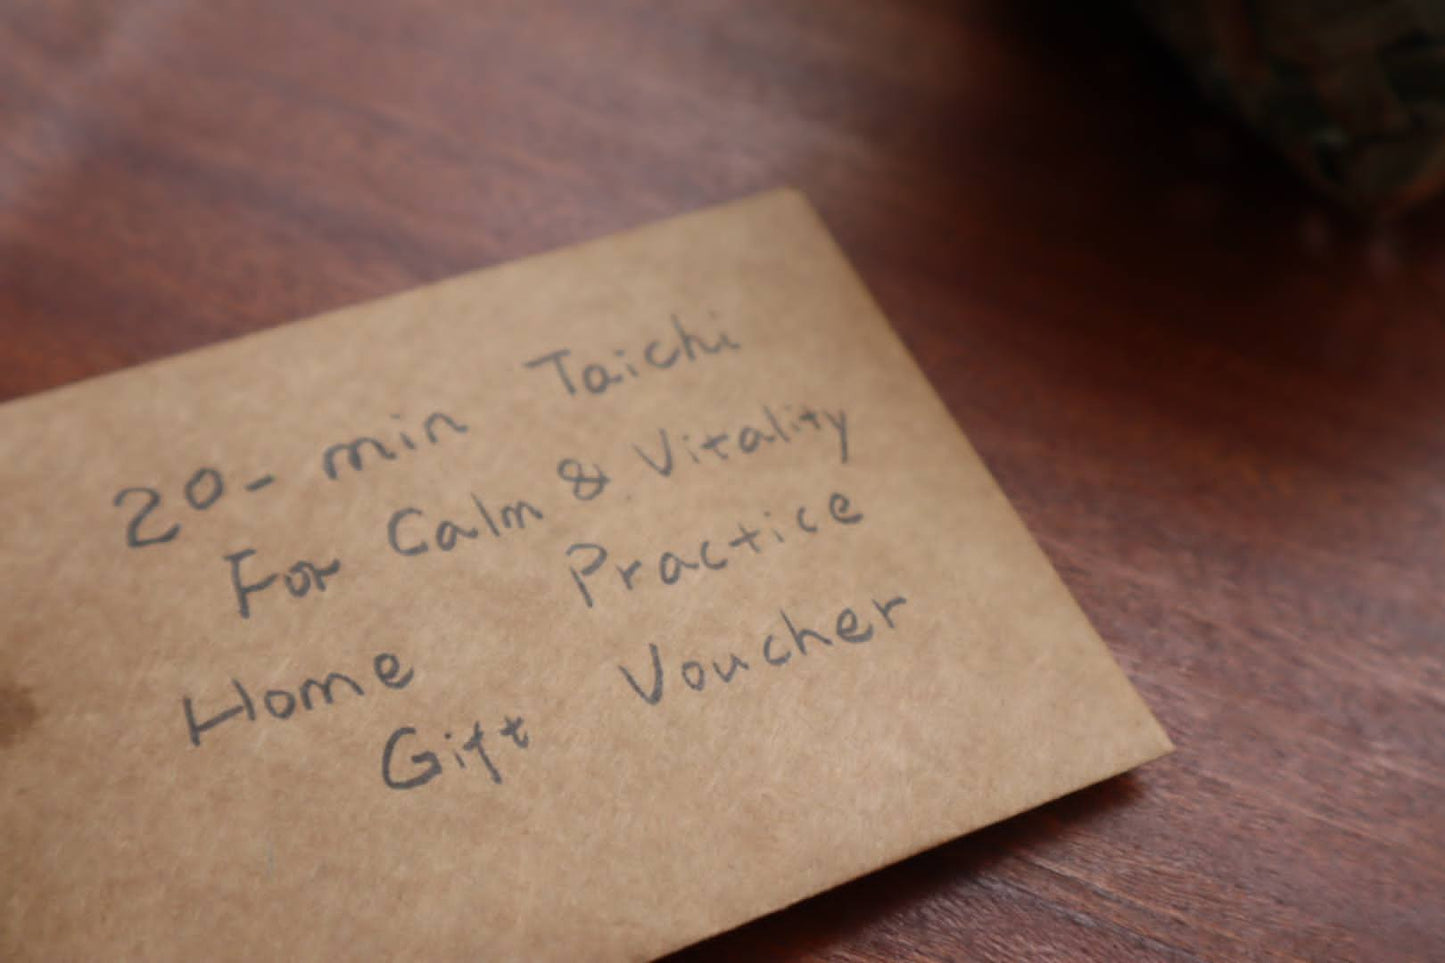 20-min Taichi
For Calm & Vitality
Home Practice
Gift Voucher